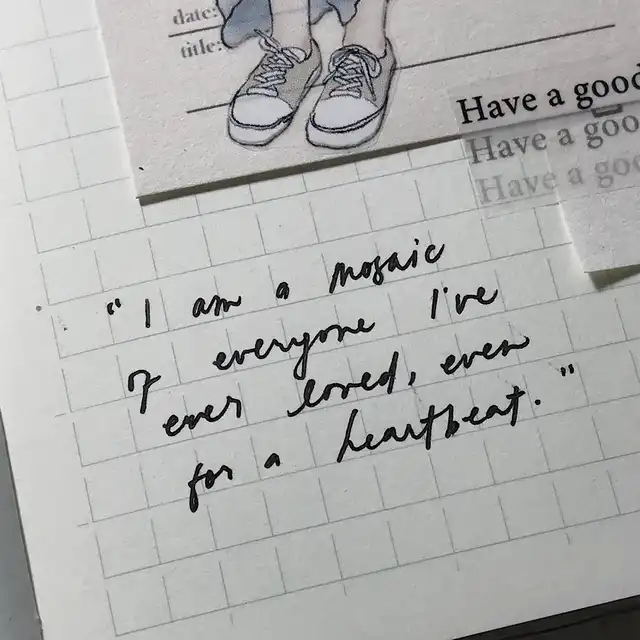 date:
title:
Have a good
Have a goo
Have a go
“I am a mosaic
of everyone I've
ever loved, even
for a heartbeat.”